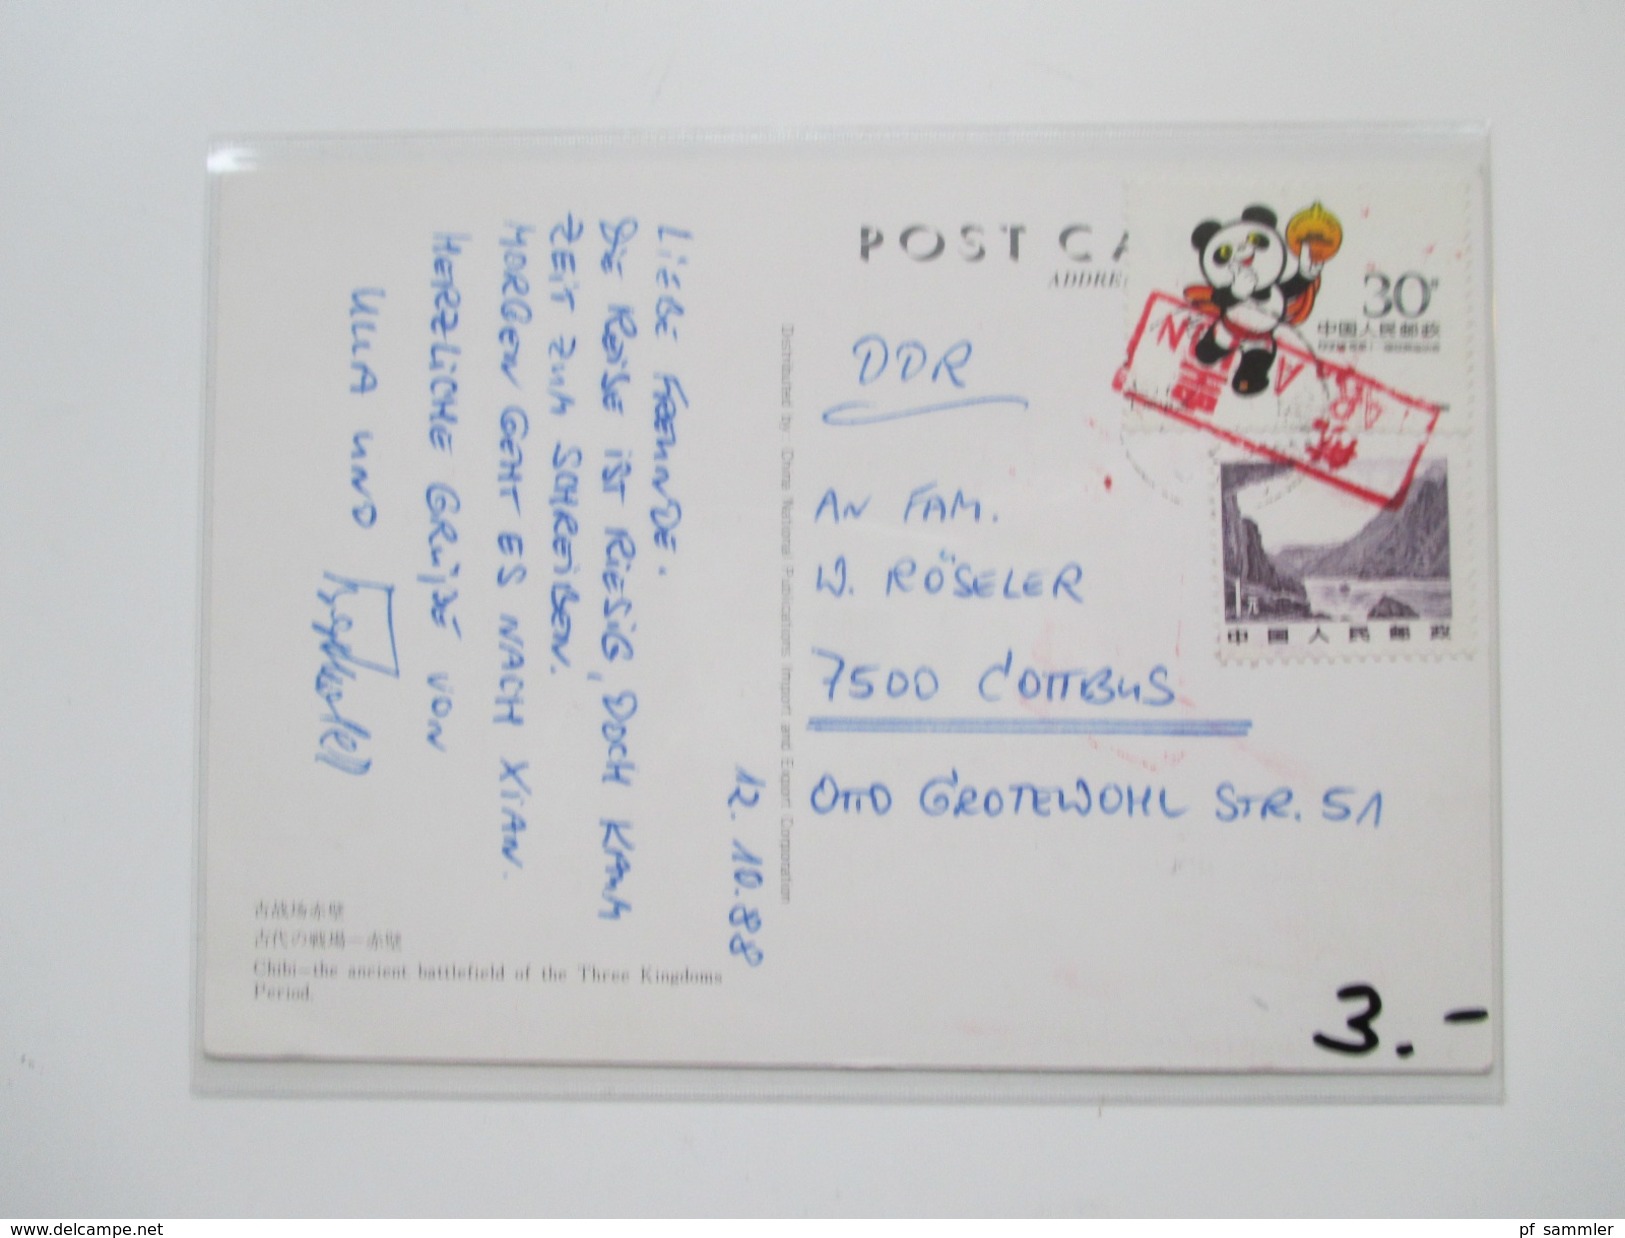 POST CA
ADDRE
30
中国人民邮政
1元
中国人民邮政
DDR
AN FAM.
W. RÖSELER
7500 COTTBUS
OTTO GROTEWOHL STR. 51
Distributed by China National Publications Import and Export Corporation
12.10.88
LIEBE FREUNDE.
DIE REISE IST RIESIG, DOCH KAUM
ZEIT ZUM SCHREIBEN.
MORGEN GEHT ES NACH XIAN.
HERZLICHE GRÜßE VON
ULLA UND
古战场赤壁
古代の戦場—赤壁
Chibi—the ancient battlefield of the Three Kingdoms
Period.
3.-
www.delcampe.net
pf_sammler